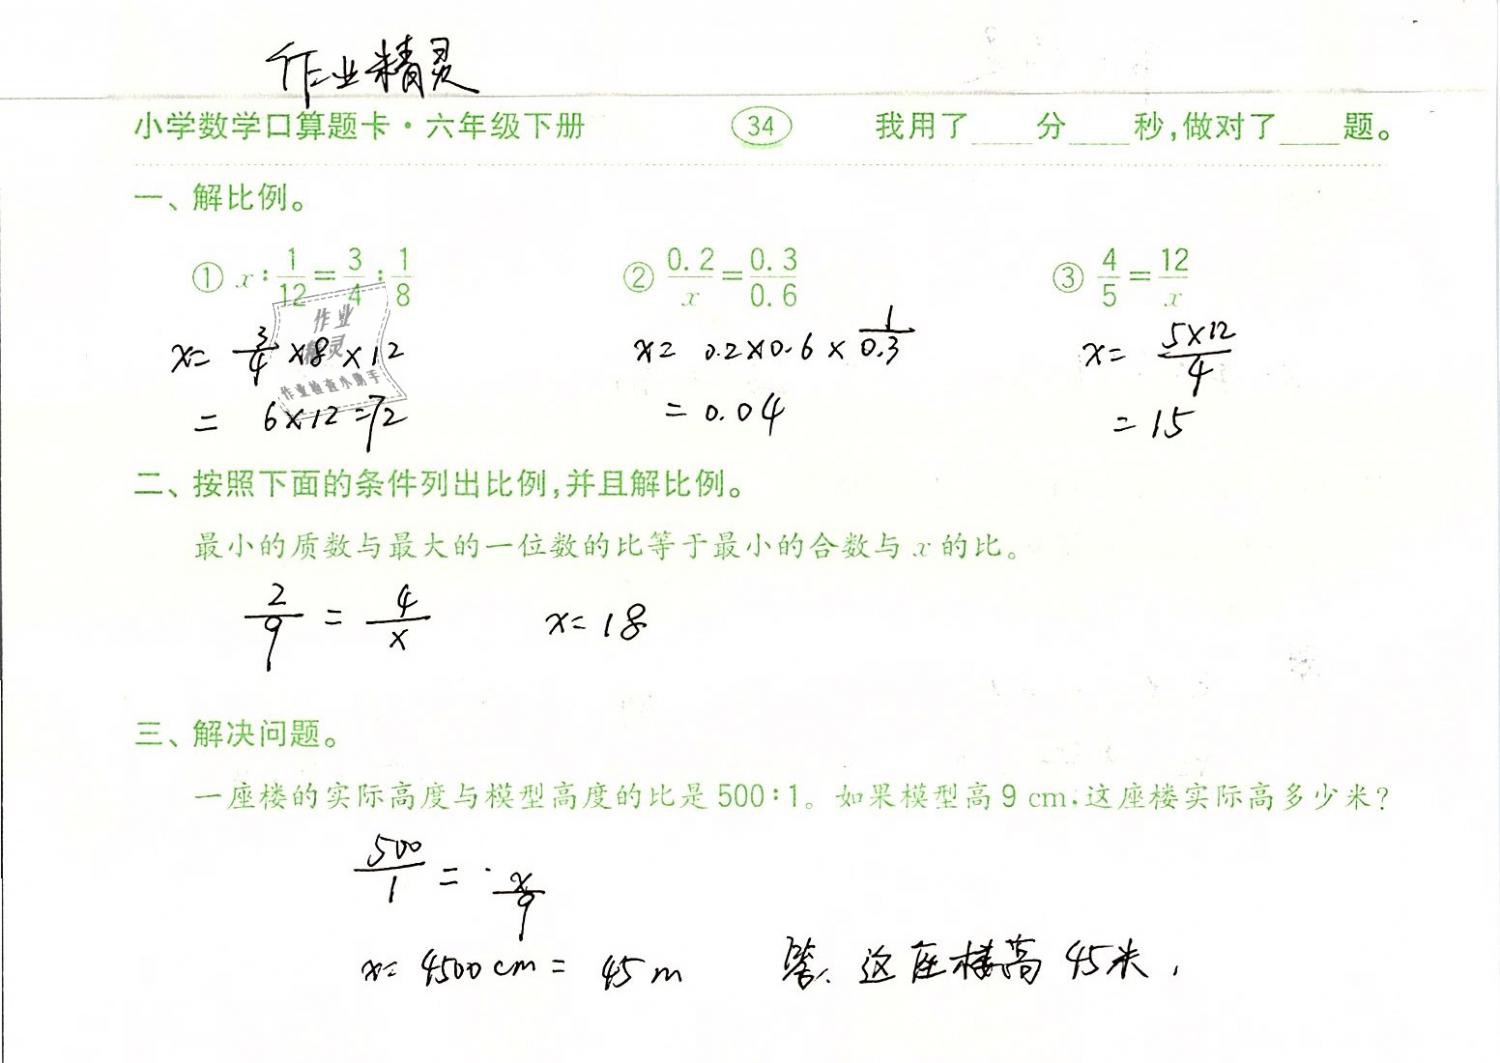 作业精灵
小学数学口算题卡·六年级下册 34 我用了____分____秒,做对了____题。
一、解比例。
① x:1/12=3/4:1/8 ② 0.2/x=0.3/0.6 ③ 4/5=12/x
作业
精灵
作业检查小助手
x= 3/4 ×8×12 x= 0.2×0.6×1/0.3 x= 5×12/4
= 6×12=72 =0.04 =15
二、按照下面的条件列出比例,并且解比例。
最小的质数与最大的一位数的比等于最小的合数与 x 的比。
2/9 = 4/x x=18
三、解决问题。
一座楼的实际高度与模型高度的比是500:1。如果模型高9 cm,这座楼实际高多少米?
500/1 = x/9
x= 4500cm = 45m 答、这座楼高45米,